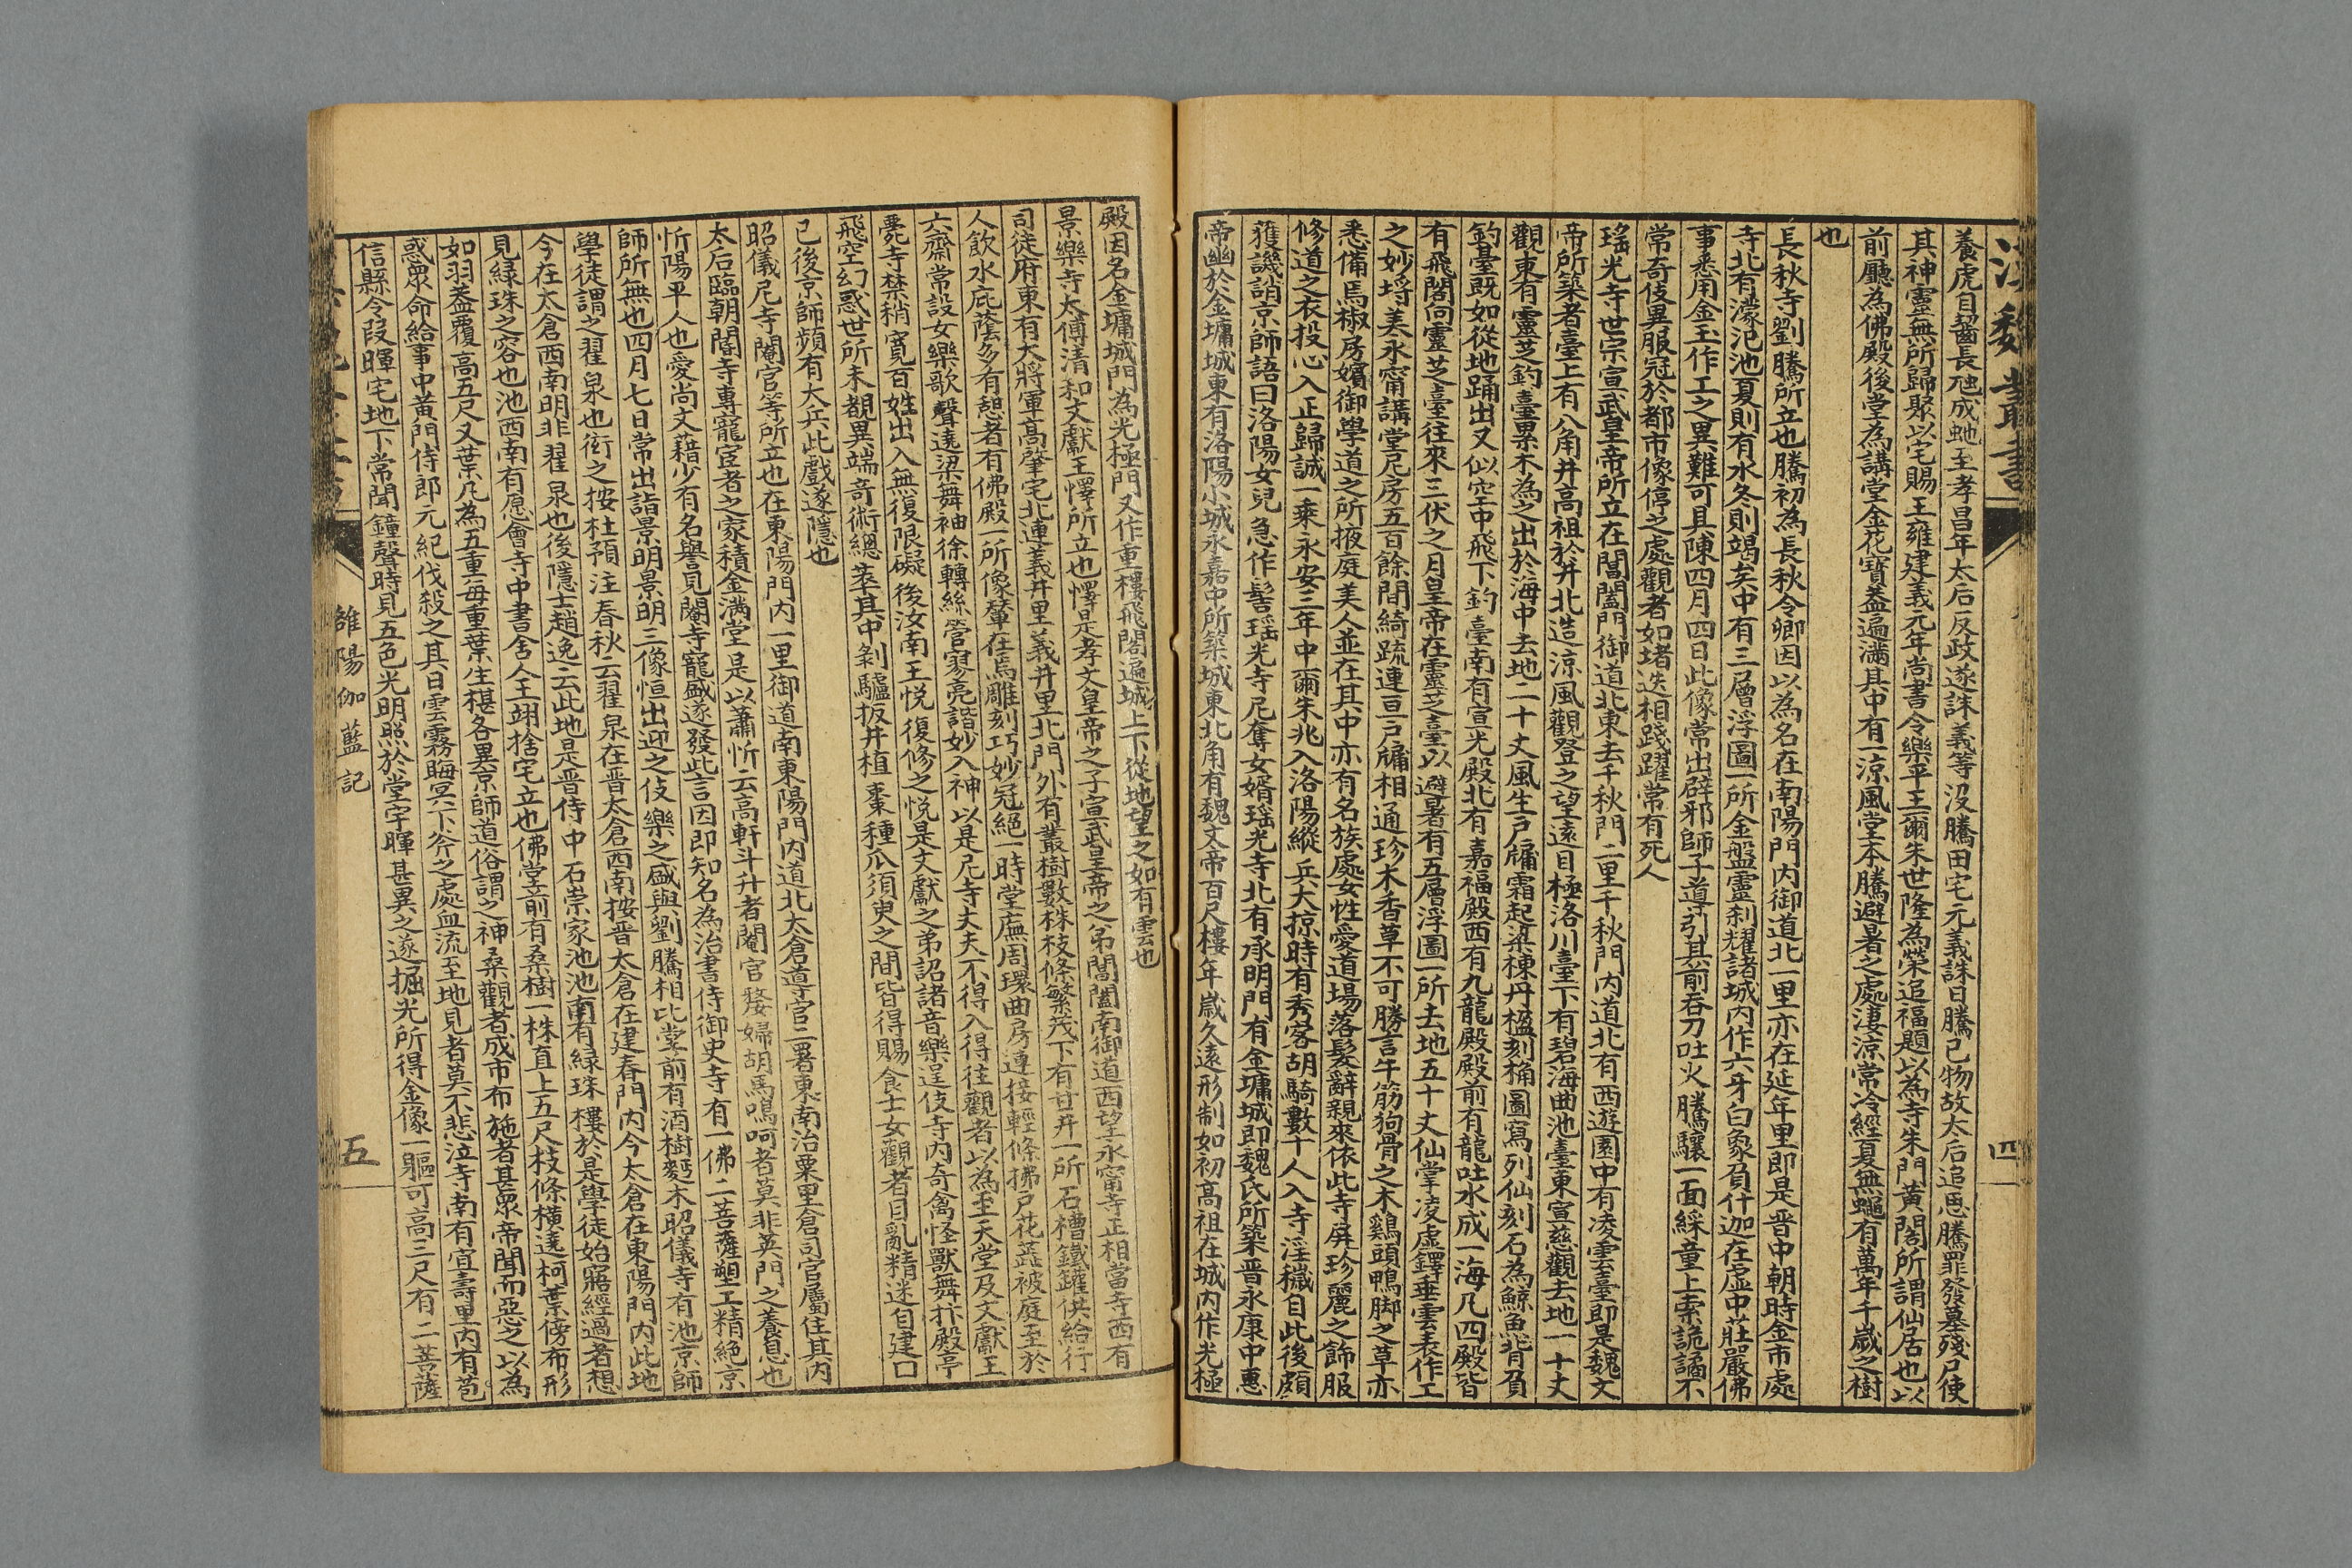 漢魏叢書
四
養虎自齧長虺成蛇至孝昌年太后反政遂誅義等沒騰田宅元義誅日騰已物故太后追思騰罪發墓殘尸使
其神靈無所歸聚以宅賜王雍建義元年尚書令樂平王爾朱世隆為榮追福題以為寺朱門黃閣所謂仙居也以
前廳為佛殿後堂為講堂金花寶蓋遍滿其中有一涼風堂本騰避暑之處淒涼常冷經夏無蠅有萬年千歲之樹
也
長秋寺劉騰所立也騰初為長秋令卿因以為名在南陽門內御道北一里亦在延年里即是晉中朝時金市處
寺北有濛汜池夏則有水冬則竭矣中有三層浮圖一所金盤靈刹耀諸城內作六牙白象負什迦在虛中莊嚴佛
事悉用金玉作工之異難可具陳四月四日此像常出辟邪師子導引其前吞刀吐火騰驤一面綵童上索詭譎不
常奇伎異服冠於都市像停之處觀者如堵迭相踐躍常有死人
瑤光寺世宗宣武皇帝所立在閶闔門御道北東去千秋門二里千秋門內道北有西遊園中有凌雲臺即是魏文
帝所築者臺上有八角井高祖於井北造涼風觀登之望遠目極洛川臺下有碧海曲池臺東宣慈觀去地一十丈
觀東有靈芝釣臺累木為之出於海中去地二十丈風生戶牖霜起梁棟丹楹刻桷圖寫列仙刻石為鯨魚背負
釣臺既如從地踊出又似空中飛下釣臺南有宣光殿北有嘉福殿西有九龍殿殿前有龍吐水成一海凡四殿皆
有飛閣向靈芝臺往來三伏之月皇帝在靈芝臺以避暑有五層浮圖一所去地五十丈仙掌凌虛鐸垂雲表作工
之妙埒美永甯講堂尼房五百餘間綺疏連亘戶牖相通珍木香草不可勝言牛筋狗骨之木雞頭鴨脚之草亦
悉備焉椒房嬪御學道之所掖庭美人並在其中亦有名族處女性愛道場落髮辭親來依此寺屏珍麗之飾服
修道之衣投心入正歸誠一乘永安三年中爾朱兆入洛陽縱兵大掠時有秀容胡騎數十人入寺淫穢自此後頗
獲譏誚京師語曰洛陽女兒急作髻瑤光寺尼奪女婿瑤光寺北有承明門有金墉城即魏氏所築晉永康中惠
帝幽於金墉城東有洛陽小城永嘉中所築城東北角有魏文帝百尺樓年歲久遠形制如初高祖在城內作光極
殿因名金墉城門為光極門又作重樓飛閣遍城上下從地望之如有雲也
景樂寺太傅清和文獻王懌所立也懌是孝文皇帝之子宣武皇帝之弟閶闔南御道西望永甯寺正相當寺西有
司徒府東有大將軍高肇宅北連義井里義井里北門外有叢樹數株枝條繁茂下有甘井一所石槽鐵鑵供給行
人飲水庇蔭多有憩者有佛殿一所像輦在焉雕刻巧妙冠絕一時堂廡周環曲房連接輕條拂戶花蕊被庭至於
六齋常設女樂歌聲遶梁舞袖徐轉絲管寥亮諧妙入神以是尼寺丈夫不得入得往觀者以為至天堂及文獻王
薨寺禁稍寬百姓出入無復限礙後汝南王悅復修之悅是文獻之弟詔諸音樂逞伎寺內奇禽怪獸舞抃殿亭
飛空幻惑世所未覩異端奇術總萃其中剝驢拔井植棗種瓜須臾之間皆得賜食士女觀者目亂精迷自建口
已後京師頻有大兵此戲遂隱也
昭儀尼寺閹官等所立也在東陽門內一里御道南東陽門內道北太倉導官二署東南治粟里倉司官屬住其內
太后臨朝閽寺專寵宦者之家積金滿堂是以蕭忻云高軒斗升者閹官嫠婦胡馬鳴呵者莫非英門之養息也
忻陽平人也愛尚文藉少有名譽見閹寺寵盛遂發此言因即知名為治書侍御史寺有一佛二菩薩塑工精絕京
師所無也四月七日常出詣景明景明三像恒出迎之伎樂之盛與劉騰相比堂前有酒樹麪木昭儀寺有池京師
學徒謂之翟泉也衒之按杜預注春秋云翟泉在晉太倉西南按晉太倉在建春門內今太倉在東陽門內此地
今在太倉西南明非翟泉也後隱士趙逸云此地是晉侍中石崇家池池南有綠珠樓於是學徒始寤經過者想
見綠珠之容也池西南有愿會寺中書舍人王翊捨宅立也佛堂前有桑樹一株直上五尺枝條橫遶柯葉傍布形
如羽蓋覆高五尺又葉凡為五重每重葉生椹各異京師道俗謂之神桑觀者成市布施者甚眾帝聞而惡之以為
惑眾命給事中黃門侍郎元紀伐殺之其日雲霧晦冥下斧之處血流至地見者莫不悲泣寺南有宜壽里內有苞
信縣令段暉宅地下常聞鐘聲時見五色光明照於堂宇暉甚異之遂掘光所得金像一軀可高三尺有二菩薩
雒陽伽藍記
五